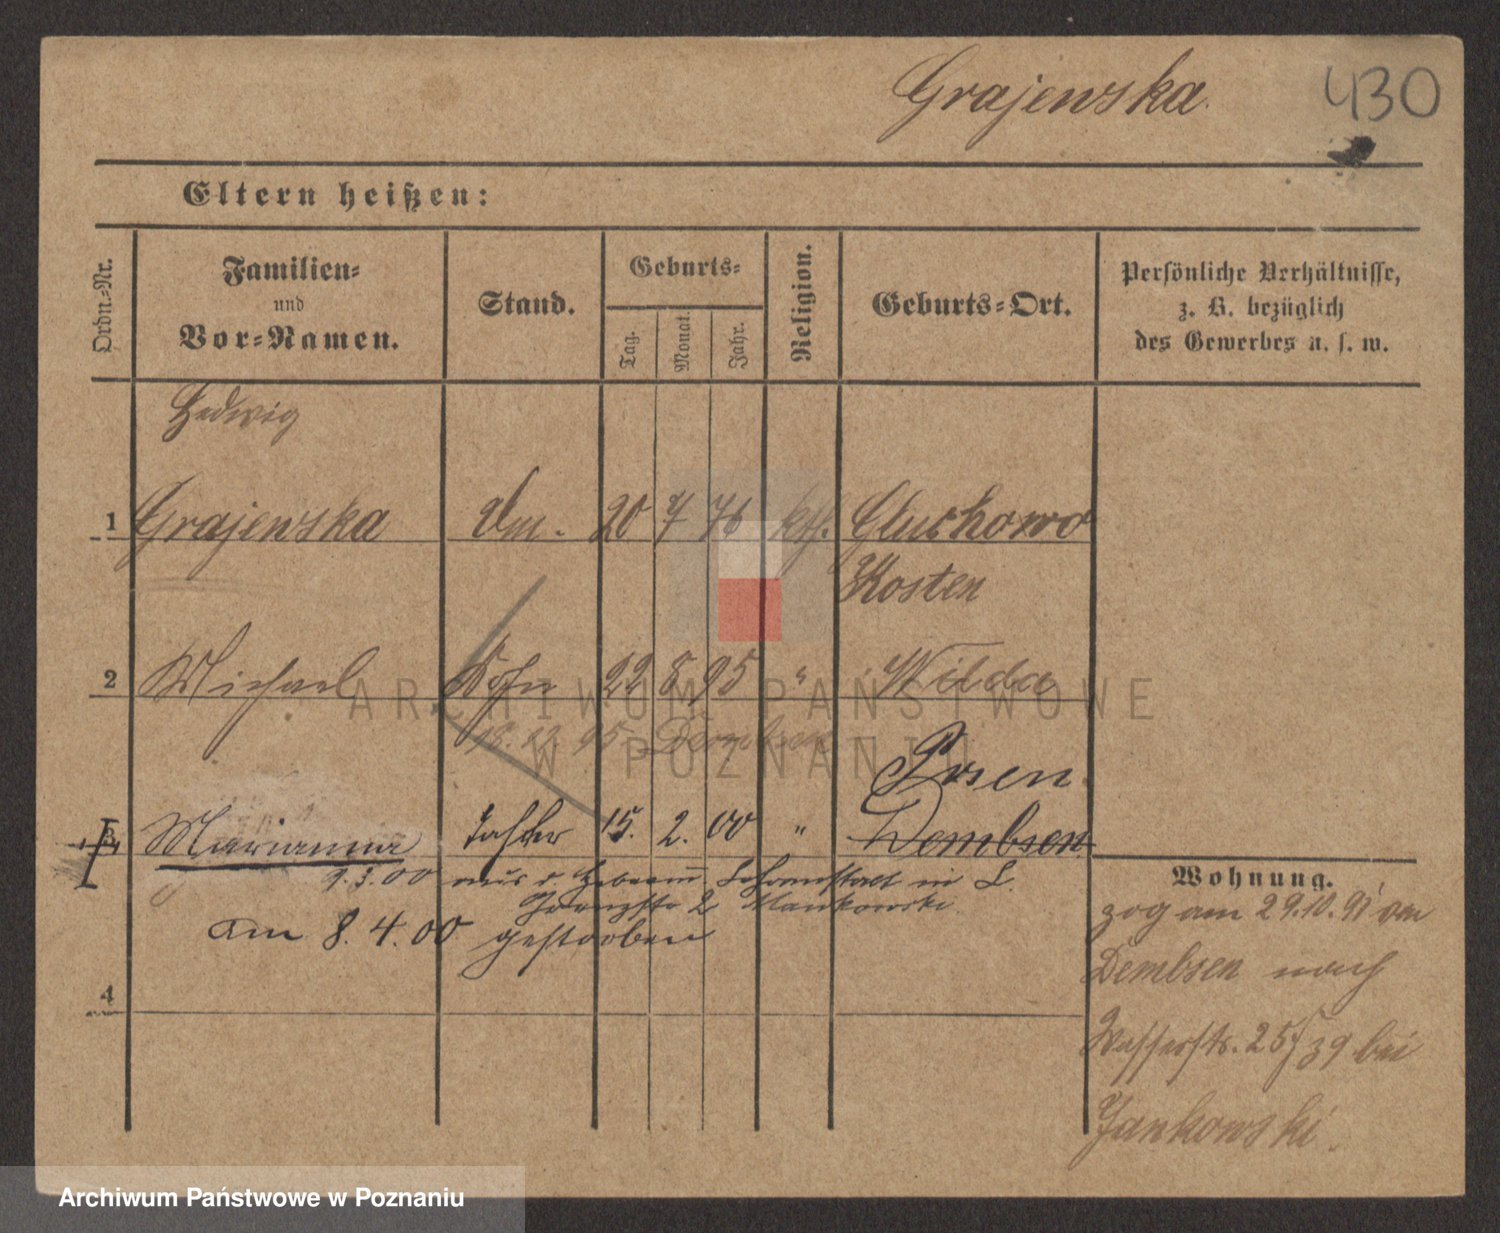 Grajewska.
430
Eltern heißen:
Ordn.-Nr.
Familien-
und
Vor-Namen.
Stand.
Geburts-
Tag.
Monat.
Jahr.
Religion.
Geburts-Ort.
Persönliche Verhältnisse,
z. B. bezüglich
des Gewerbes u. s. w.
Hedwig
1 Grajewska 20 7 76 kth. Gluchowo
Kosten
2 Michael Sohn 22 8 95 " Wilda
Dembsen
Posen
3 Marianna Tochter 15. 2. 00 " Dembsen
9.3.00 aus d. in L.
2 Mankowski
am 8. 4. 00 gestorben
4
Wohnung.
zog am 29.10. von
Dembsen nach
Wasserstr. 25/39 bei
Jankowski.
ARCHIWUM PAŃSTWOWE
W POZNANIU
Archiwum Państwowe w Poznaniu